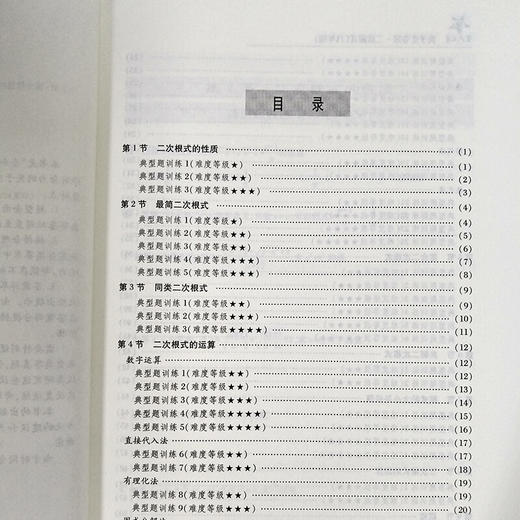 目 录
第1节 二次根式的性质 (1)
典型题训练1(难度等级★) (1)
典型题训练2(难度等级★★) (2)
典型题训练3(难度等级★★★) (3)
第2节 最简二次根式 (4)
典型题训练1(难度等级★) (4)
典型题训练2(难度等级★★) (5)
典型题训练3(难度等级★★) (6)
典型题训练4(难度等级★★★) (7)
典型题训练5(难度等级★★★) (8)
第3节 同类二次根式 (9)
典型题训练1(难度等级★★) (9)
典型题训练2(难度等级★★★) (10)
典型题训练3(难度等级★★★★) (11)
第4节 二次根式的运算 (12)
数字运算 (12)
典型题训练1(难度等级★★) (12)
典型题训练2(难度等级★★) (13)
典型题训练3(难度等级★★★) (14)
典型题训练4(难度等级★★★★) (15)
典型题训练5(难度等级★★★★) (16)
直接代入法 (17)
典型题训练6(难度等级★★) (17)
典型题训练7(难度等级★★★) (18)
有理化法 (19)
典型题训练8(难度等级★★) (19)
典型题训练9(难度等级★★★) (20)